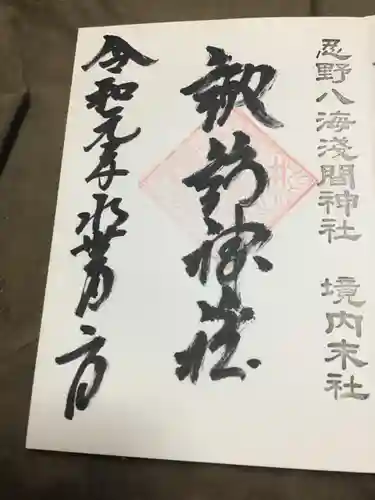 忍野八海淺間神社 境内末社
諏訪神社
令和元年水無月日